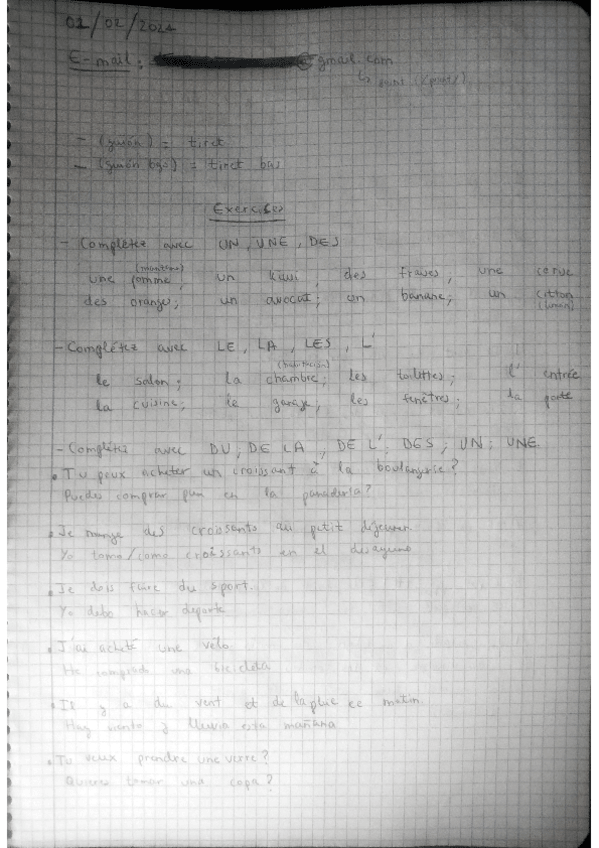 02/02/2021
E-mail: @gmail.com
↳ point (punto)
- (guión) = tiret
- (guión bajo) = tiret bas
Exercises
- Complétez avec UN, UNE, DES
(manzana)
une pomme, un kiwi, des fraises, une cerise
des orange; un avocat; un banane; un citron
(limón)
- Complétez avec LE, LA, LES, L'
(habitación)
le salon; la chambre; les toilettes; l' entrée
la cuisine; le garage, les fenêtres; la porte
- Complétez avec DU; DE LA; DE L'; DES; UN; UNE
• Tu peux acheter un croissant à la boulangerie?
Puedes comprar pan en la panadería?
• Je mange des croissants au petit déjeuner
Yo tomo/como croissants en el desayuno
• Je dois faire du sport.
Yo debo hacer deporte
• J'ai acheté une vélo
He comprado una bicicleta
• Il y a du vent et de la pluie ce matin
Hay viento y lluvia esta mañana
• Tu veux prendre une verre?
Quieres tomar una copa?